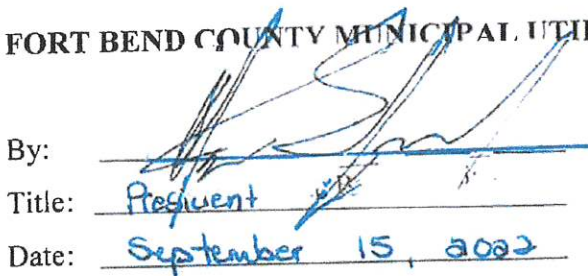 FORT BEND COUNTY MUNICIPAL UTI
By:
Title: President
Date: September 15, 2022